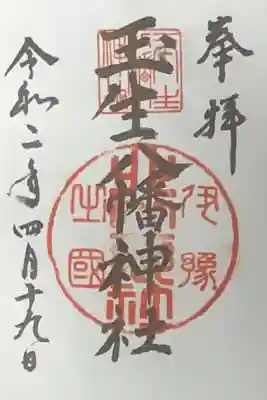 奉拝
玉生八幡神社
伊豫
之國
令和二年四月十九日